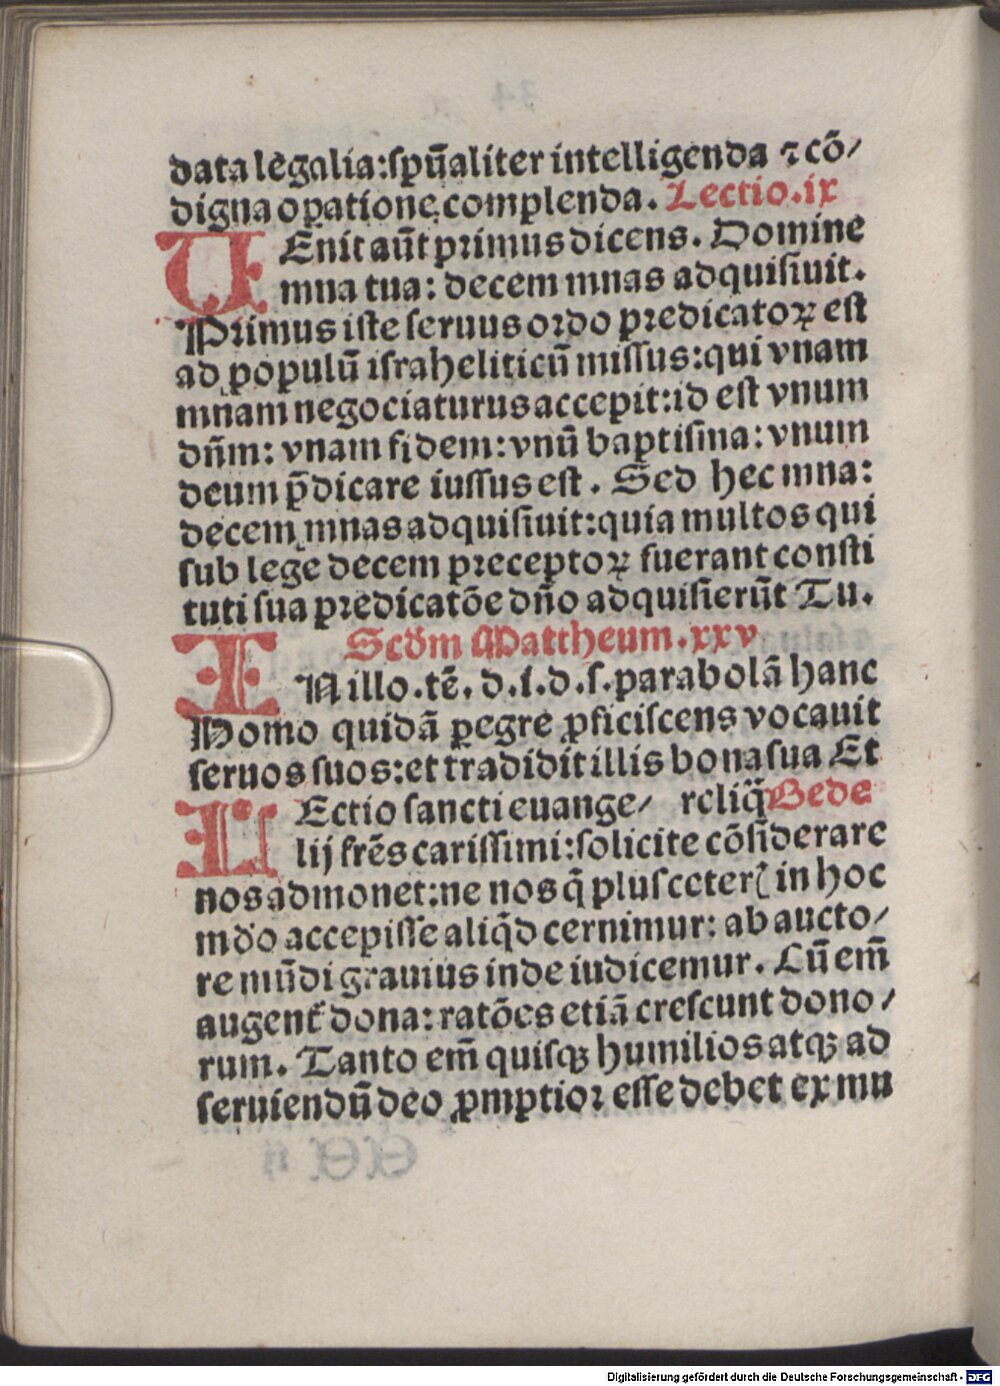 data legalia:ſpūaliter intelligenda ⁊ cō/
digna oꝑatione complenda. Lectio.ix
VEnit aūt primus dicens. Domine
mna tua: decem mnas adquiſiuit.
Primus iſte ſeruus ordo predicatoꝝ eſt
ad populū iſraheliticū miſſus:qui vnam
mnam negociaturus accepit:id eſt vnum
dn̄m: vnam fidem: vnū baptiſma: vnum
deum p̄dicare iuſſus eſt. Sed hec mna:
decem mnas adquiſiuit:quia multos qui
ſub lege decem preceptoꝝ fuerant conſti
tuti ſua predicatōe dn̄o adquiſierūt Tu.
Scd̄m Mattheum.xxv
IN illo.tē. d.i.d.ſ.parabolā hanc
Homo quidā ꝑegre ꝓficiſcens vocauit
ſeruos ſuos:et tradidit illis bona ſua Et
LEctio ſancti euange/ reliq̄ Bede
lij frēs cariſſimi:ſolicite cōſiderare
nos admonet:ne nos q̄ pluſ ceterꝭ in hoc
mdo accepiſſe aliq̄d cernimur: ab aucto/
re mūdi grauius inde iudicemur. Cū em̄
augent̄ dona: ratōes etiā creſcunt dono/
rum. Tanto em̄ quiſqꝫ humilios atqꝫ ad
ſeruiendū deo ꝓmptior eſſe debet ex mu
Digitalisierung gefördert durch die Deutsche Forschungsgemeinschaft - DFG